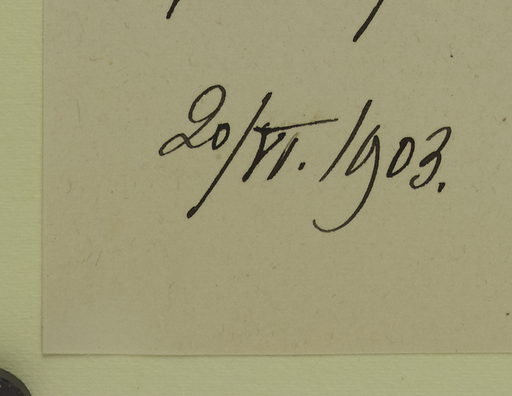 20/VI. 1903.